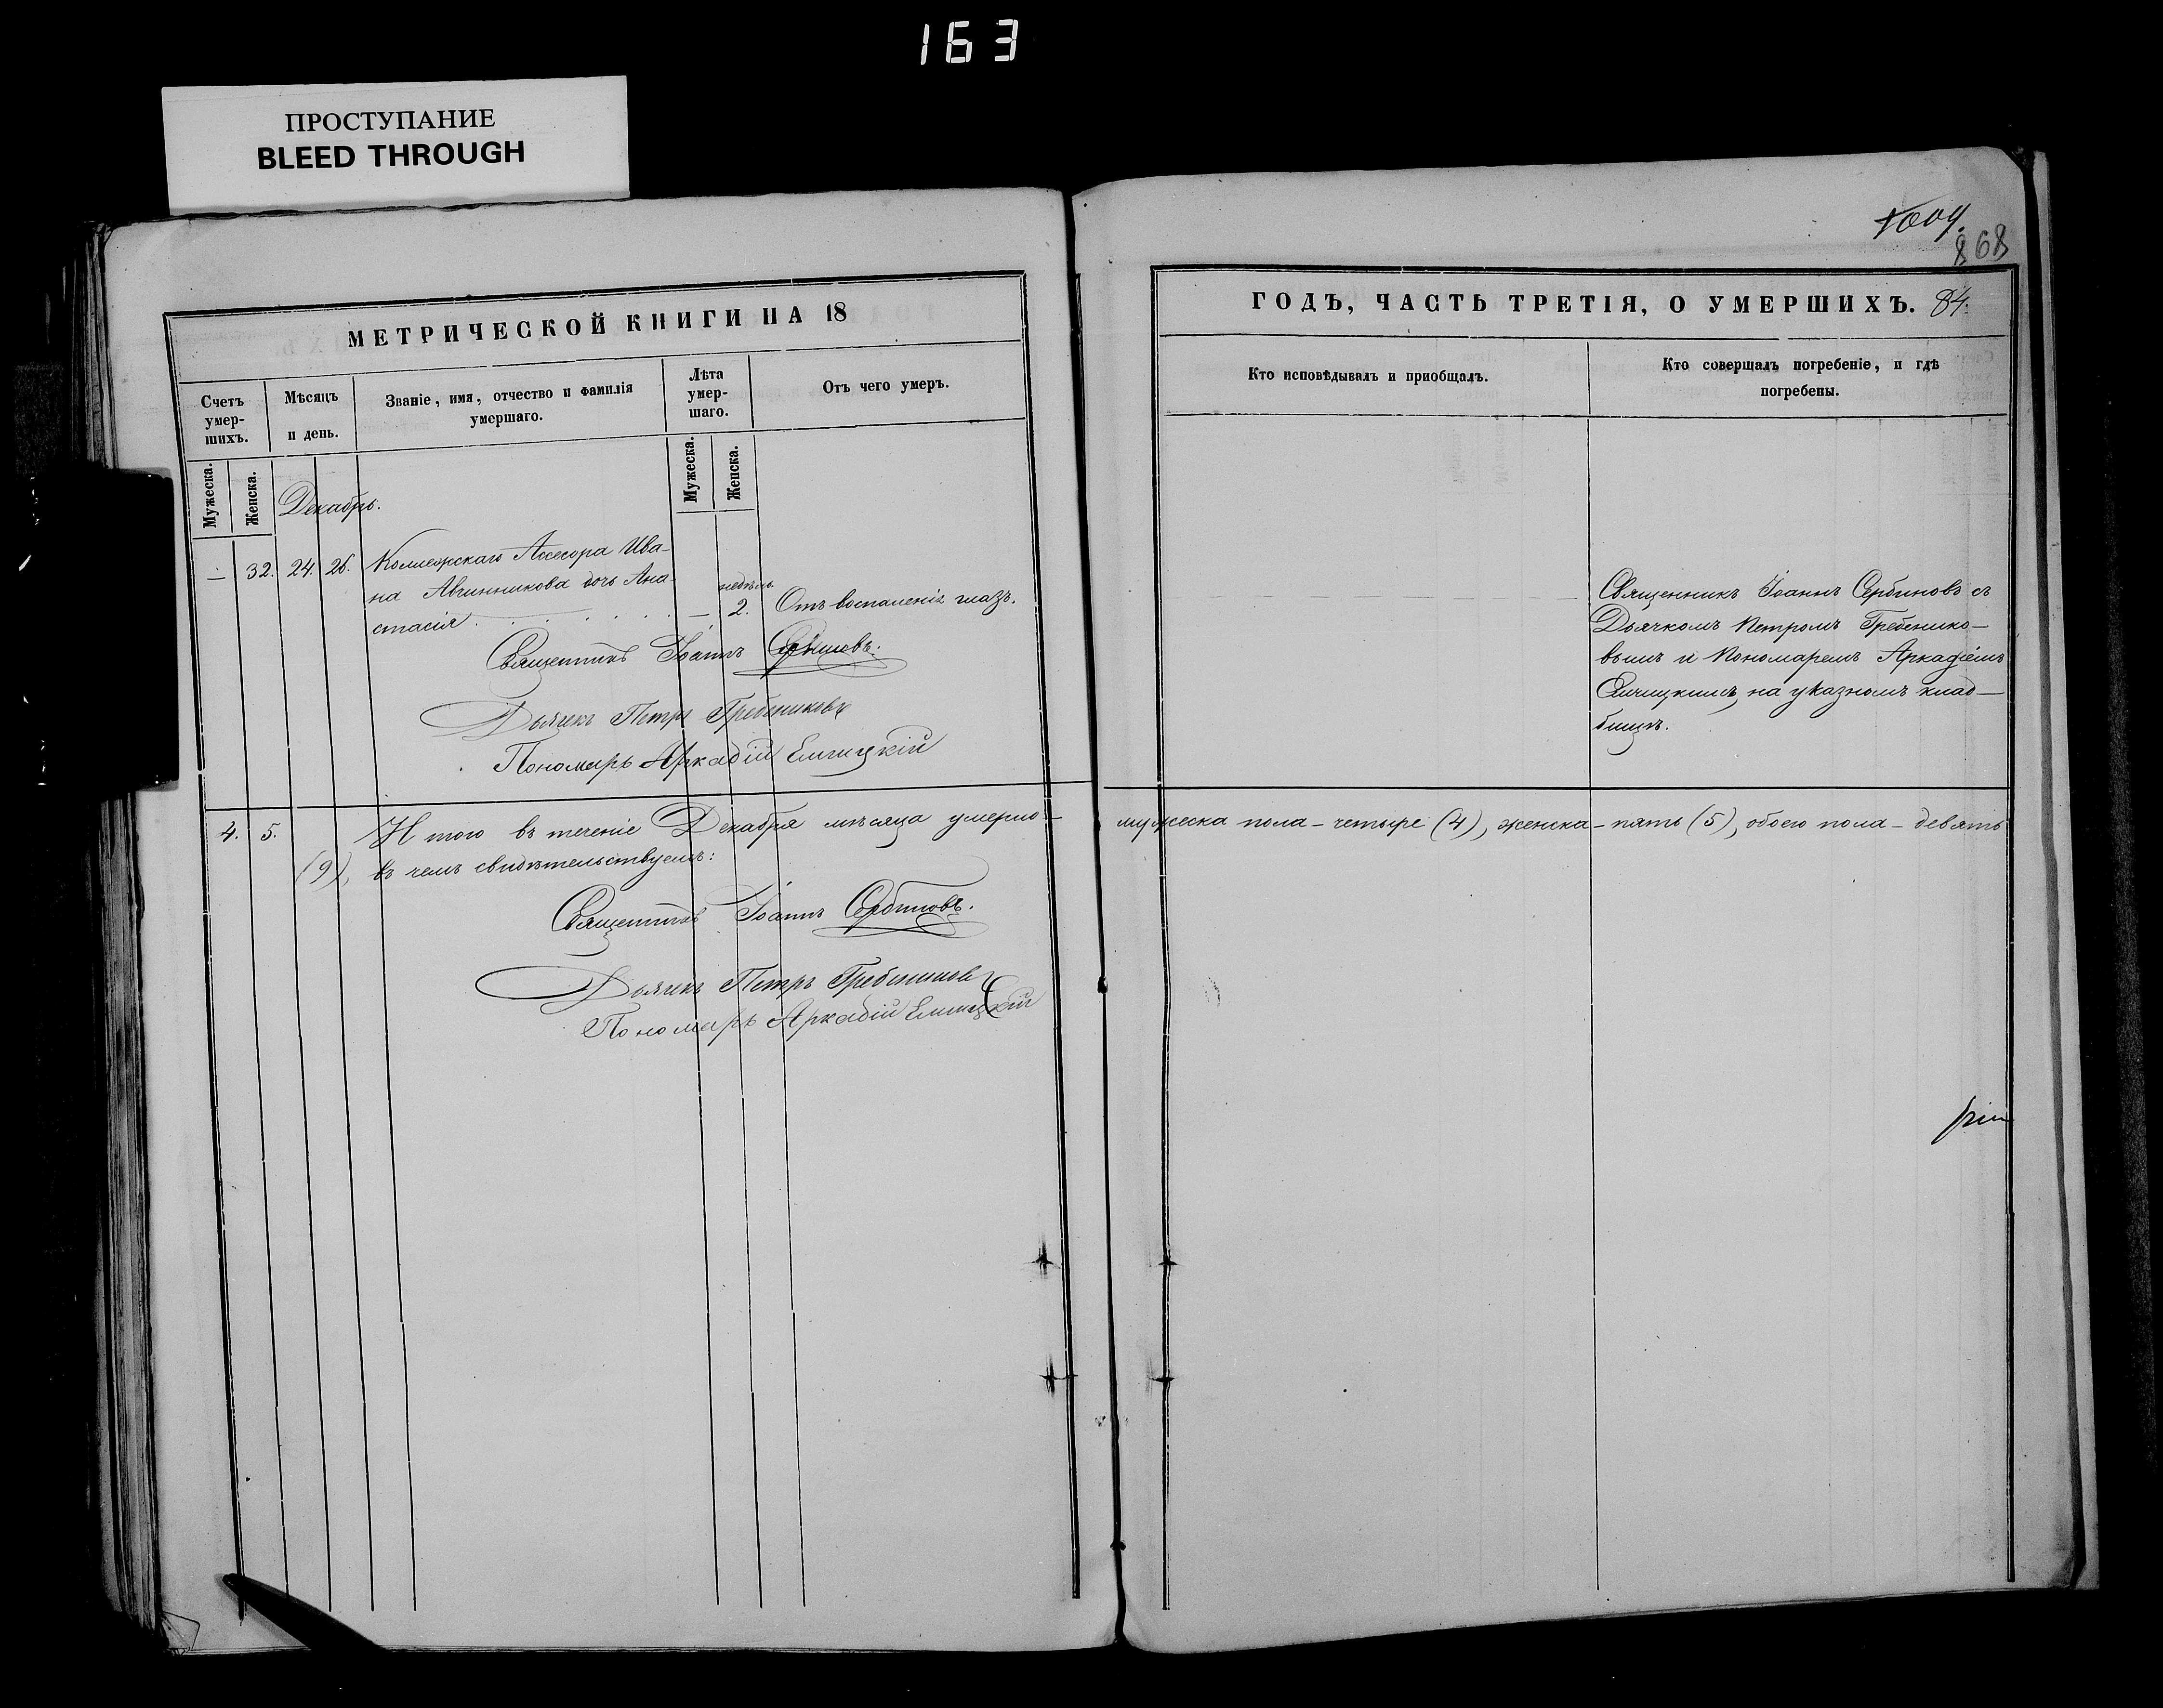 163
ПРОСТУПАНИЕ
BLEED THROUGH
1009.
868
МЕТРИЧЕСКОЙ КНИГИ НА 18
Счетъ умер-шихъ.
Мѣсяцъ и день.
Званіе, имя, отчество и фамилія умершаго.
Лѣта умер-шаго.
Отъ чего умеръ.
Мужеска.
Женска.
Мужеска.
Женска.
Декабрь.
— 32. 24. 26. Коллежскаго Ассесора Ива-
на Авчинникова дочь Ана-
стасія — недѣль 2. Отъ воспаленія глазъ.
Священникъ Іоаннъ Сербиновъ.
Дьячекъ Петръ Гребениковъ
Пономарь Аркадій Елчицкій
4. 5. Итого въ теченіе Декабря мѣсяца умерло
(9), въ чемъ свидѣтельствуемъ:
Священникъ Іоаннъ Сербиновъ.
Дьячекъ Петръ Гребениковъ
Пономарь Аркадій Елчицкій
ГОДЪ, ЧАСТЬ ТРЕТІЯ, О УМЕРШИХЪ. 84.
Кто исповѣдывалъ и приобщалъ.
Кто совершалъ погребеніе, и гдѣ погребены.
Священникъ Іоаннъ Сербиновъ съ
Дьячкомъ Петромъ Гребенико-
вымъ и Пономаремъ Аркадіемъ
Елчицкимъ, на указномъ клад-
бищѣ.
мужеска пола - четыре (4), женска - пять (5), обоего пола - девять